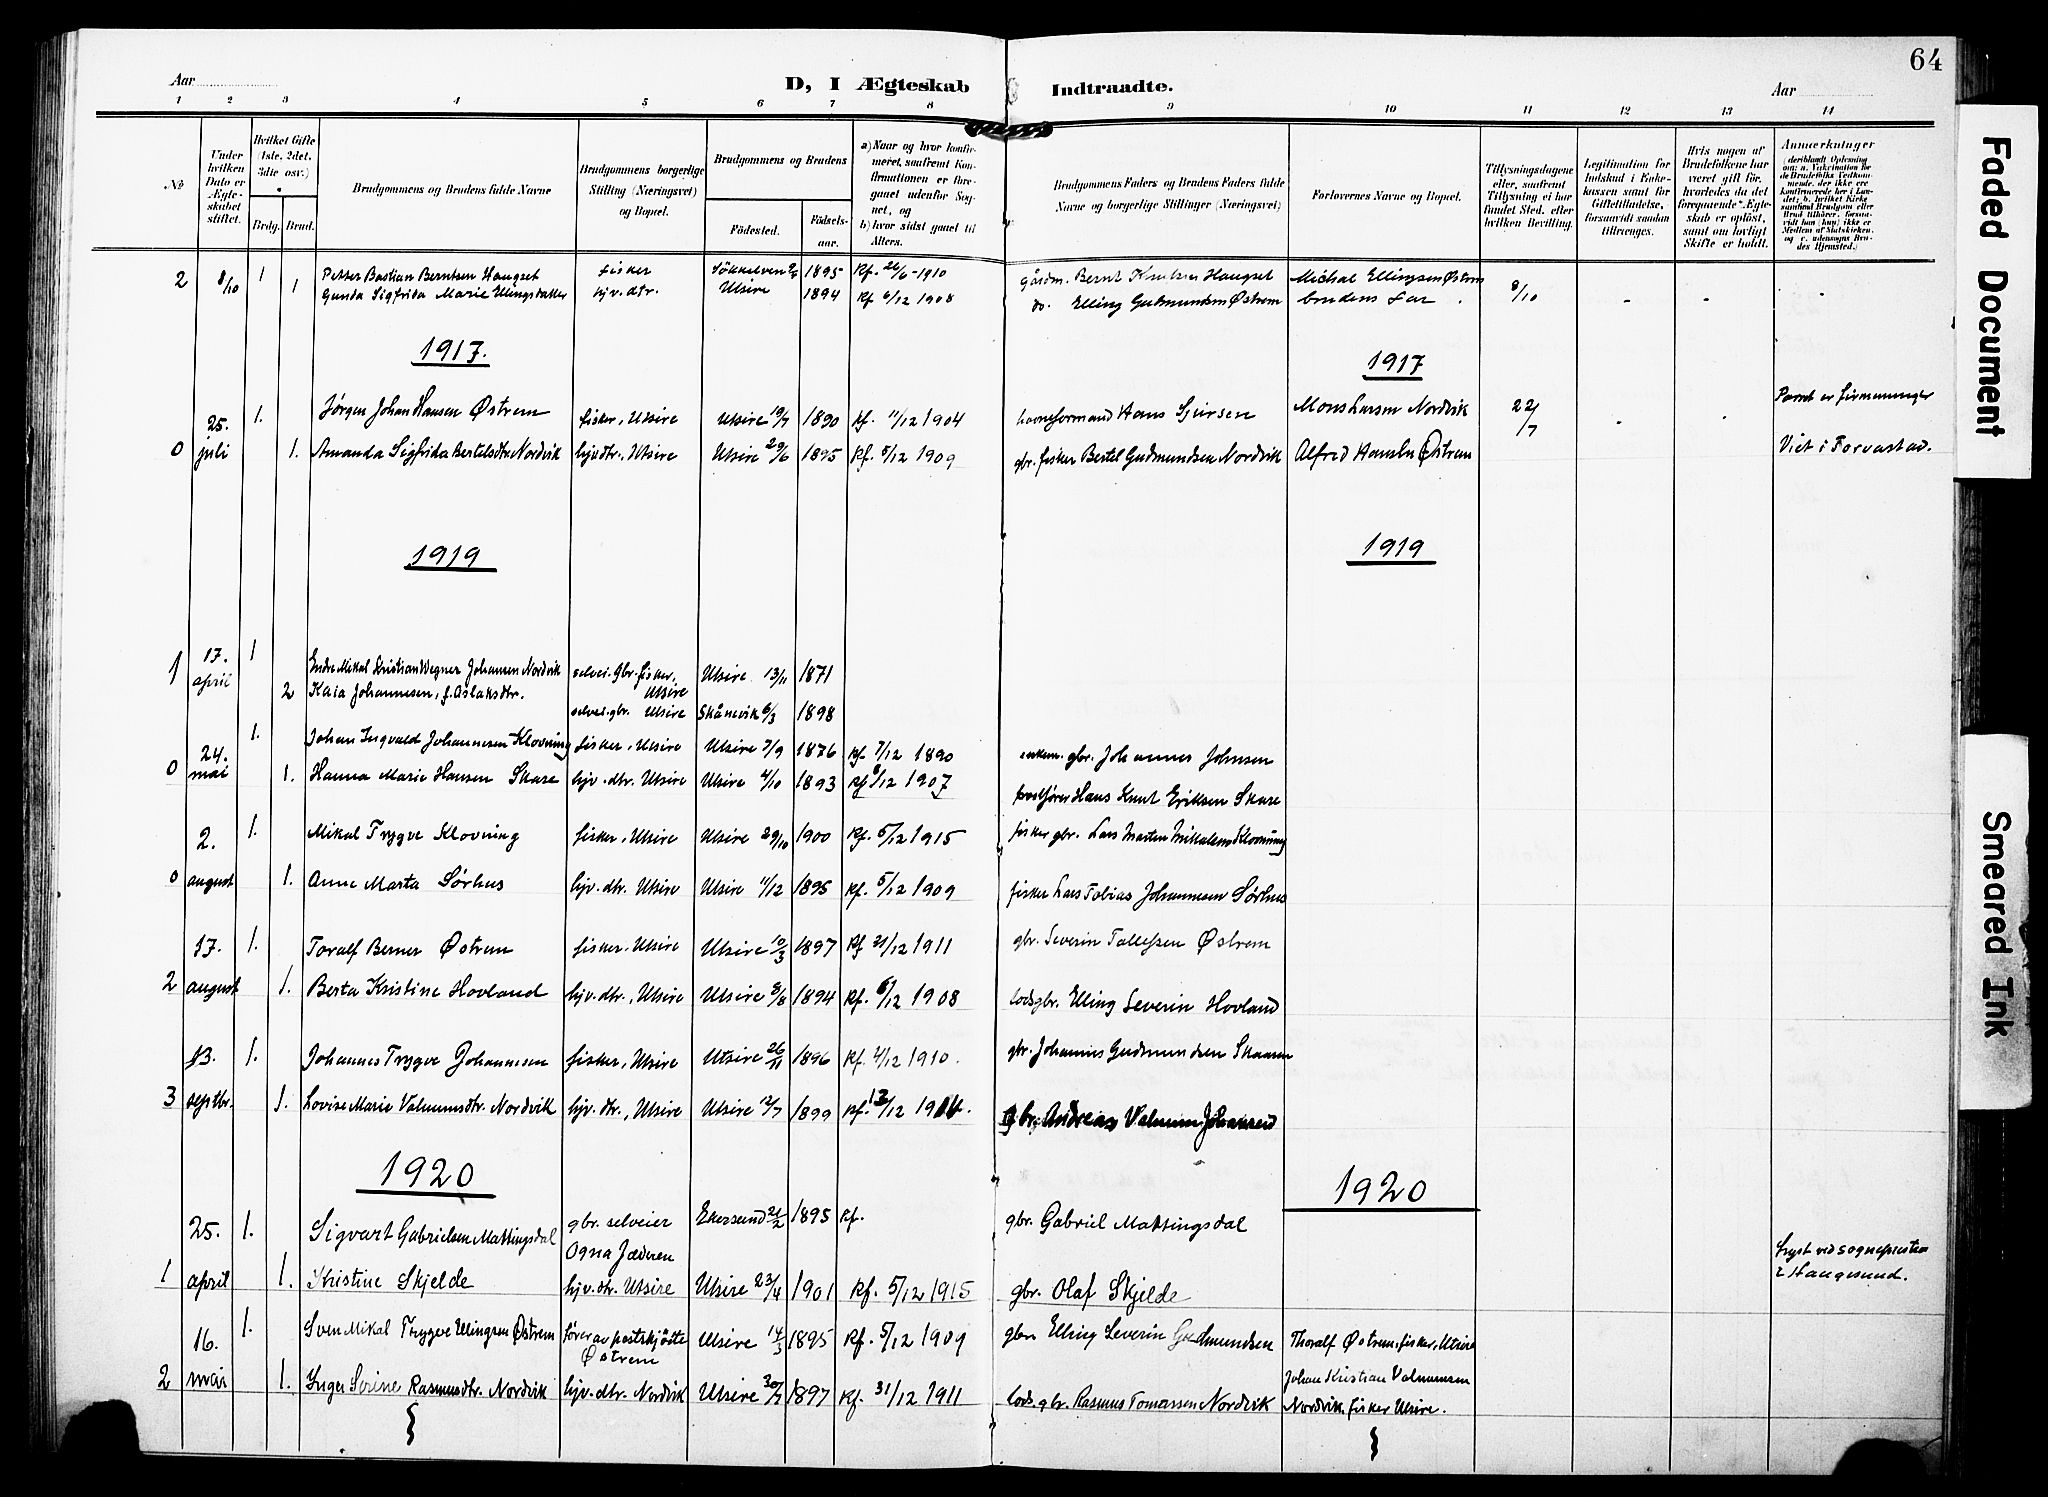 64
Aar
D, I Ægteskab
Indtraadte.
Aar
1 2 3 4 5 6 7 8 9 10 11 12 13 14
No
Under hvilken Dato er Ægteskabet stiftet.
Hvilket Gifte (1ste, 2det, 3die osv.)
Brdg. Brud.
Brudgommens og Brudens fulde Navne
Brudgommens borgerlige Stilling (Næringsvei) og Bopæl.
Brudgommens og Brudens
Fødested.
Fødselsaar.
a) Naar og hvor konfirmeret, saafremt Konfirmationen er foregaaet udenfor Sognet, og
b) hvor sidst gaaet til Alters.
Brudgommens Faders og Brudens Faders fulde Navne og borgerlige Stillinger (Næringsvei)
Forlovernes Navne og Bopæl.
Tillysningsdagene eller, saafremt Tillysning ei har fundet Sted, efter hvilken Bevilling.
Legitimation for Indskud i Enkekassen samt for Giftetilladelse, forsaavidt saadan tiltrænges.
Hvis nogen af Brudefolkene har været gift før, hvorledes da det foregaaende Ægteskab er opløst, samt om lovligt Skifte er holdt.
Anmærkninger
2 8/10 1 Petter Bastian Berntsen Haugset fisker Søkkelven 1895 Kf. 26/6-1910 Gårdm. Bernt Knutsen Haugset Michal Ellingsen Østrem 8/10
1 Gunda Sigfrida Marie Ellingsdatter hjv. dtr. Utsire 1894 Kf 6/12 1908 do. Elling Gudmundsen Østrem brudens far
1917. 1917
25. 1. Jørgen Johan Hansen Østrem fisker, Utsire Utsire 19/7 1890 Kf. 11/12 1904 havneformand Hans Sjursen Mons Larsen Nordvik 22/7 Parret er firmenninger
0 juli 1. Amanda Sigfrida Bertelsdtr Nordvik hjv. dtr., Utsire Utsire 29/6 1895 Kf. 5/12 1909 gbr. fisker Bertel Gudmundsen Nordvik Alfred Hansen Østrem Viet i Torvastad.
1919 1919
1 17. april 1 Endre Mikal Kristian Wegner Johansen Nordvik selvei. gbr. fisker, Utsire Utsire 13/11 1871
2 Kaia Johannesen, f. Aslaksdtr. selvei. gbr. Utsire Skånevik 6/3 1898
24. 1. Johan Ingvald Johannesen Klovning fisker, Utsire Utsire 7/9 1876 Kf. 7/12 1890 gbr. Johannes Johnsen
0 mai 1. Hanna Marie Hansen Skare hjv. dtr. Utsire Utsire 4/10 1893 Kf 8/12 1907 postfører Hans Knut Eriksen Skare
2. 1. Mikal Trygve Klovning fisker, Utsire Utsire 29/10 1900 Kf. 5/12 1915 fisker gbr. Lars Marten Mikkalsens Klovning
0 august 1. Anne Marta Sørhus hjv. dtr. Utsire Utsire 11/12 1895 Kf. 5/12 1909 fisker Lars Tobias Johannesen Sørhus
17. 1. Toralf Berner Østrem fisker, Utsire Utsire 10/3 1897 Kf 31/12 1911 gbr. Severin Tollefsen Østrem
2 august 1. Berta Kristine Hovland hjv. dtr., Utsire Utsire 8/8 1894 Kf. 6/12 1908 lods gbr. Elling Severin Hovland
13. 1. Johannes Trygve Johannesen fisker, Utsire Utsire 26/11 1896 Kf. 4/12 1910. gbr. Johannes Gudmundsen Skaaren
3 septbr. 1. Lovise Marie Valnumsdtr. Nordvik hjv. dtr., Utsire Utsire 12/7 1899 Kf. 13/12 1914. gbr. Andreas Valnum Johansen
1920 1920
25. 1. Sigvart Gabrielsen Mattingsdal gbr. selveier Ogna Jæderen Ekersund 21/2 1895 Kf. gbr. Gabriel Mattingsdal
1 april 1. Kristine Skjelde hjv. dtr. Utsire Utsire 23/4 1901 Kf. 5/12 1915 gbr. Olaf Skjelde Lyst ved sognepresten i Haugesund.
16. 1. Sven Mikal Trygve Ellingsen Østrem fører av postskjøtte Østrem Utsire 14/3 1895 Kf. 5/12 1909 gbr. Elling Severin Gudmundsen Thoralf Østrem, fisker, Utsire
2 mai 1. Inger Serine Rasmusdtr. Nordvik hjv. dtr. Nordvik Utsire 30/7 1897 Kf. 31/12 1911 lods. gbr. Rasmus Tomassen Nordvik Johan Kristian Valnumsen Nordvik, fisker Utsire.
Faded Document
Smeared Ink